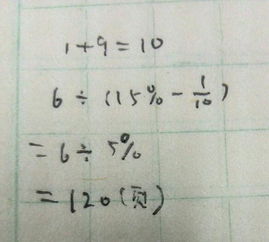 1+9=10
6÷(15%-1/10)
=6÷5%
=120(页)